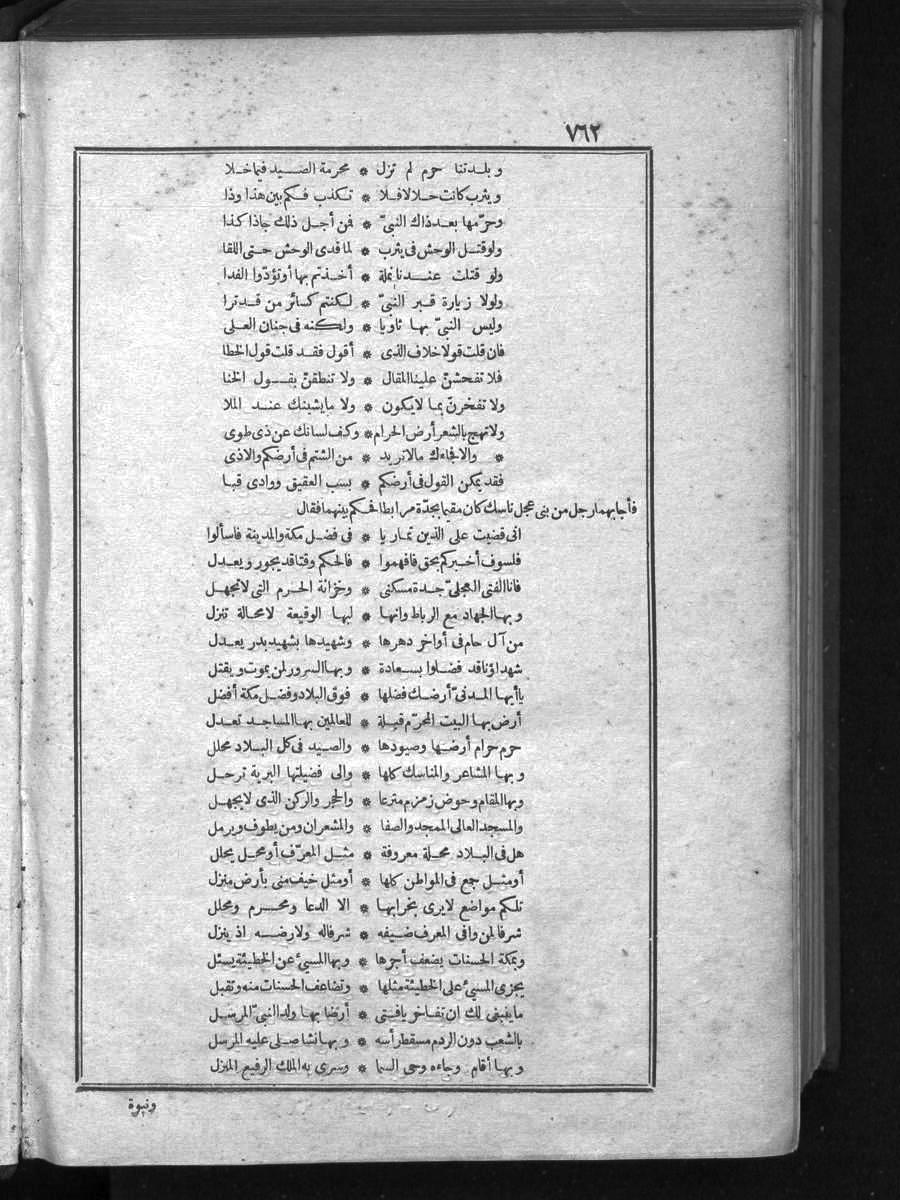 ٧٦٢
وبلدتنا حرم لم تزل * محرمة الصيد فيما خلا
ويثرب كانت حلالا فلا * تكذب فكم بين هذا وذا
وحرّمها بعد ذاك النبيّ * فمن أجل ذلك جاذا كذا
ولو قتل الوحش فى يثرب * لما فدى الوحش حتى اللقا
ولو قتلت عندنا نملة * أخذتم بها أو تؤدّوا الفدا
ولولا زيارة قبر النبيّ * لكنتم كسائر من قد ترا
وليس النبيّ بها ثاويا * ولكنه فى جنان العلى
فان قلت قولا خلاف الذى * أقول فقد قلت قول الخطا
فلا تفحشنّ علينا المقال * ولا تنطقنّ بقول الخنا
ولا تفخرنّ بما لا يكون * ولا ما يشينك عند الملا
ولا تهج بالشعر أرض الحرام * وكف لسانك عن ذى طوى
* والا فجاءك ما لا تريد * من الشتم فى أرضكم والاذى
فقد يمكن القول فى أرضكم * بسب العقيق ووادى قبا
فأجابهما رجل من بنى عجل ناسك كان مقيما بجدّة مرابطا فحكم بينهما فقال
انى قضيت على الذين تماريا * فى فضل مكة والمدينة فاسألوا
فلسوف أخبركم بحق فافهموا * فالحكم وقتا قد يجور ويعدل
فانا الفتى العجلىّ جدة مسكنى * وخزانة الحرم التى لا تجهل
وبها الجهاد مع الرباط وانها * لبها الوقيعة لا محالة تنزل
من آل حام فى أواخر دهرها * وشهيدها بشهيد بدر يعدل
شهداؤنا قد فضلوا بسعادة * وبها السرور لمن يموت ويقتل
يا أيها المدنىّ أرضك فضلها * فوق البلاد وفضل مكة أفضل
أرض بها البيت المحرّم قبلة * للعالمين بها المساجد تعدل
حرم حرام أرضها وصيودها * والصيد فى كل البلاد محلل
وبها المشاعر والمناسك كلها * والى فضيلتها البرية ترحل
وبها المقام وحوض زمزم مترعا * والحجر والركن الذى لا يجهل
والمسجد العالى الممجد والصفا * والمشعران ومن يطوف ويرمل
هل فى البلاد محلة معروفة * مثل المعرّف أو محل يحلل
أو مثل جمع فى المواطن كلها * أو مثل خيف منى بأرض منزل
تلكم مواضع لا يرى بخرابها * الا الدعا ومحرم ومحلل
شرفا لمن وافى المعرف ضيفه * شرفا له ولارضه اذ ينزل
وبمكة الحسنات يضعف أجرها * وبها المسيئ عن الخطيئة يسئل
يجزى المسيئ على الخطيئة مثلها * وتضاعف الحسنات منه وتقبل
ما ينبغى لك ان تفاخر يافتى * أرضا بها ولد النبىّ المرسل
بالشعب دون الردم مسقط رأسه * وبها نشا صلى عليه المرسل
وبها أقام وجاءه وحى السما * وسرى به الملك الرفيع المنزل
ونبوة